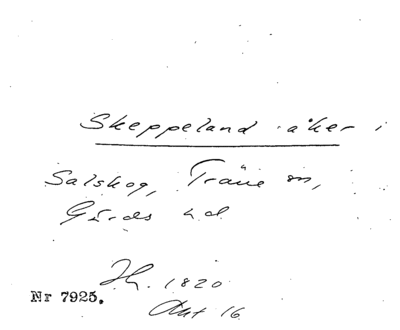 Skeppeland åker i
Salskog, Träne sn,
Gärds hd
H. 1820
Akt 16
Nr 7925.